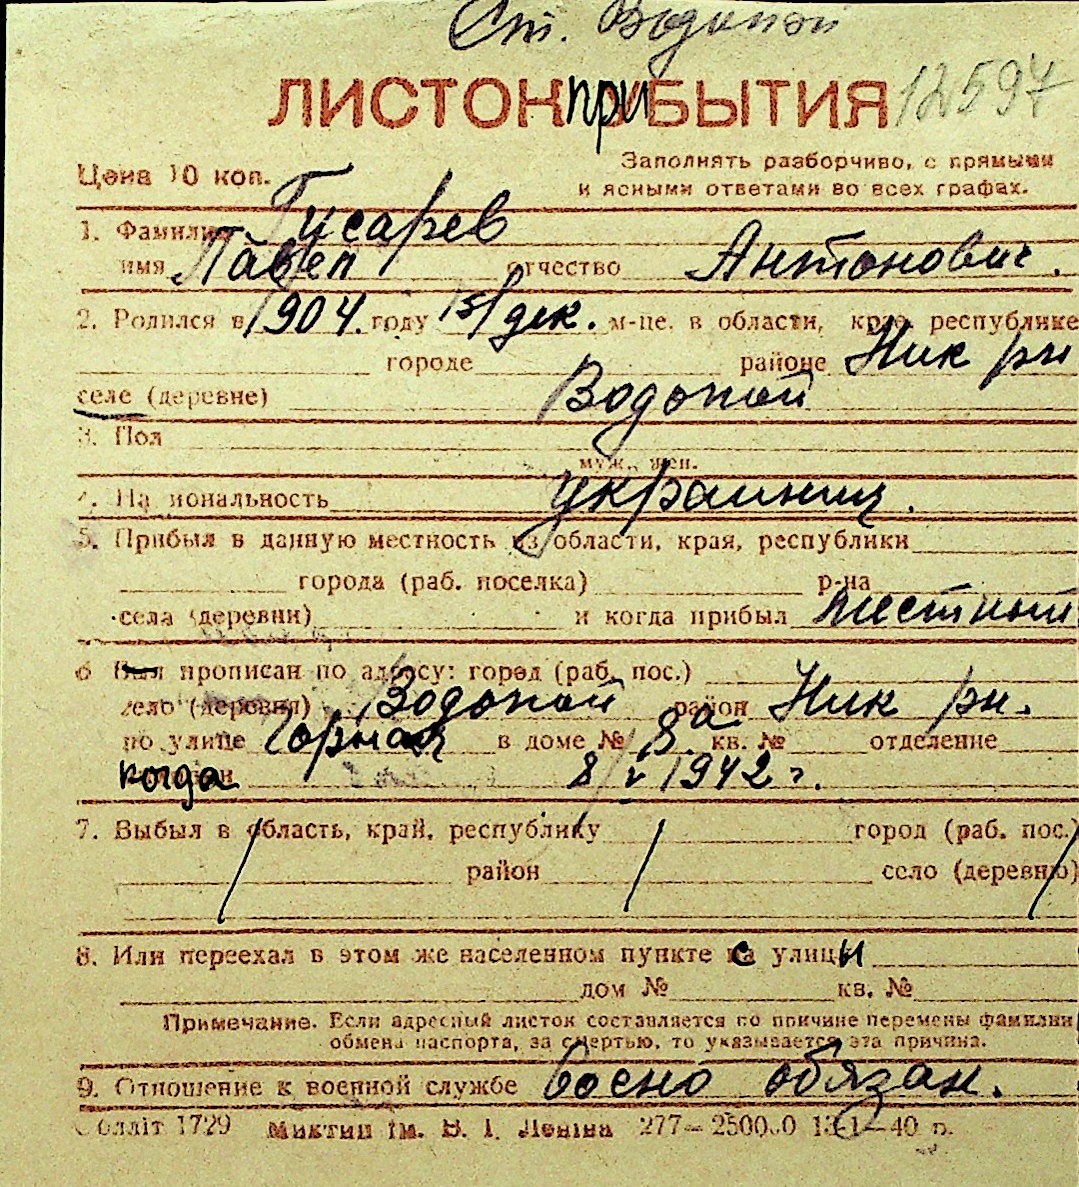 Ст. Водопой
ЛИСТОК ПРИБЫТИЯ 12597
Цена 10 коп.
Заполнять разборчиво, с прямыми
и ясными ответами во всех графах.
1. Фамилия Гисарев
имя Павел отчество Антонович.
2. Родился в 1904. году 15/дек. м-це. в области, крае, республике
городе районе Ник рн
селе (деревне) Водопой
3. Пол
муж., жен.
4. Национальность украинец.
5. Прибыл в данную местность из области, края, республики
города (раб. поселка) р-на
села (деревни) и когда прибыл местный
6 прописан по адресу: город (раб. пос.)
село (деревня) Водопой район Ник рн.
по улице Горная в доме № 8а кв. № отделение
когда 8/V 1942 г.
7. Выбыл в область, край, республику город (раб. пос.)
район село (деревню)
8. Или переехал в этом же населенном пункте с улицы
дом № кв. №
Примечание. Если адресный листок составляется по причине перемены фамилии
обмена паспорта, за смертью, то указывается эта причина.
9. Отношение к военной службе военно обязан.
Обліт 1729 Миктип ім. В. І. Леніна 277—250000 13-1—40 р.